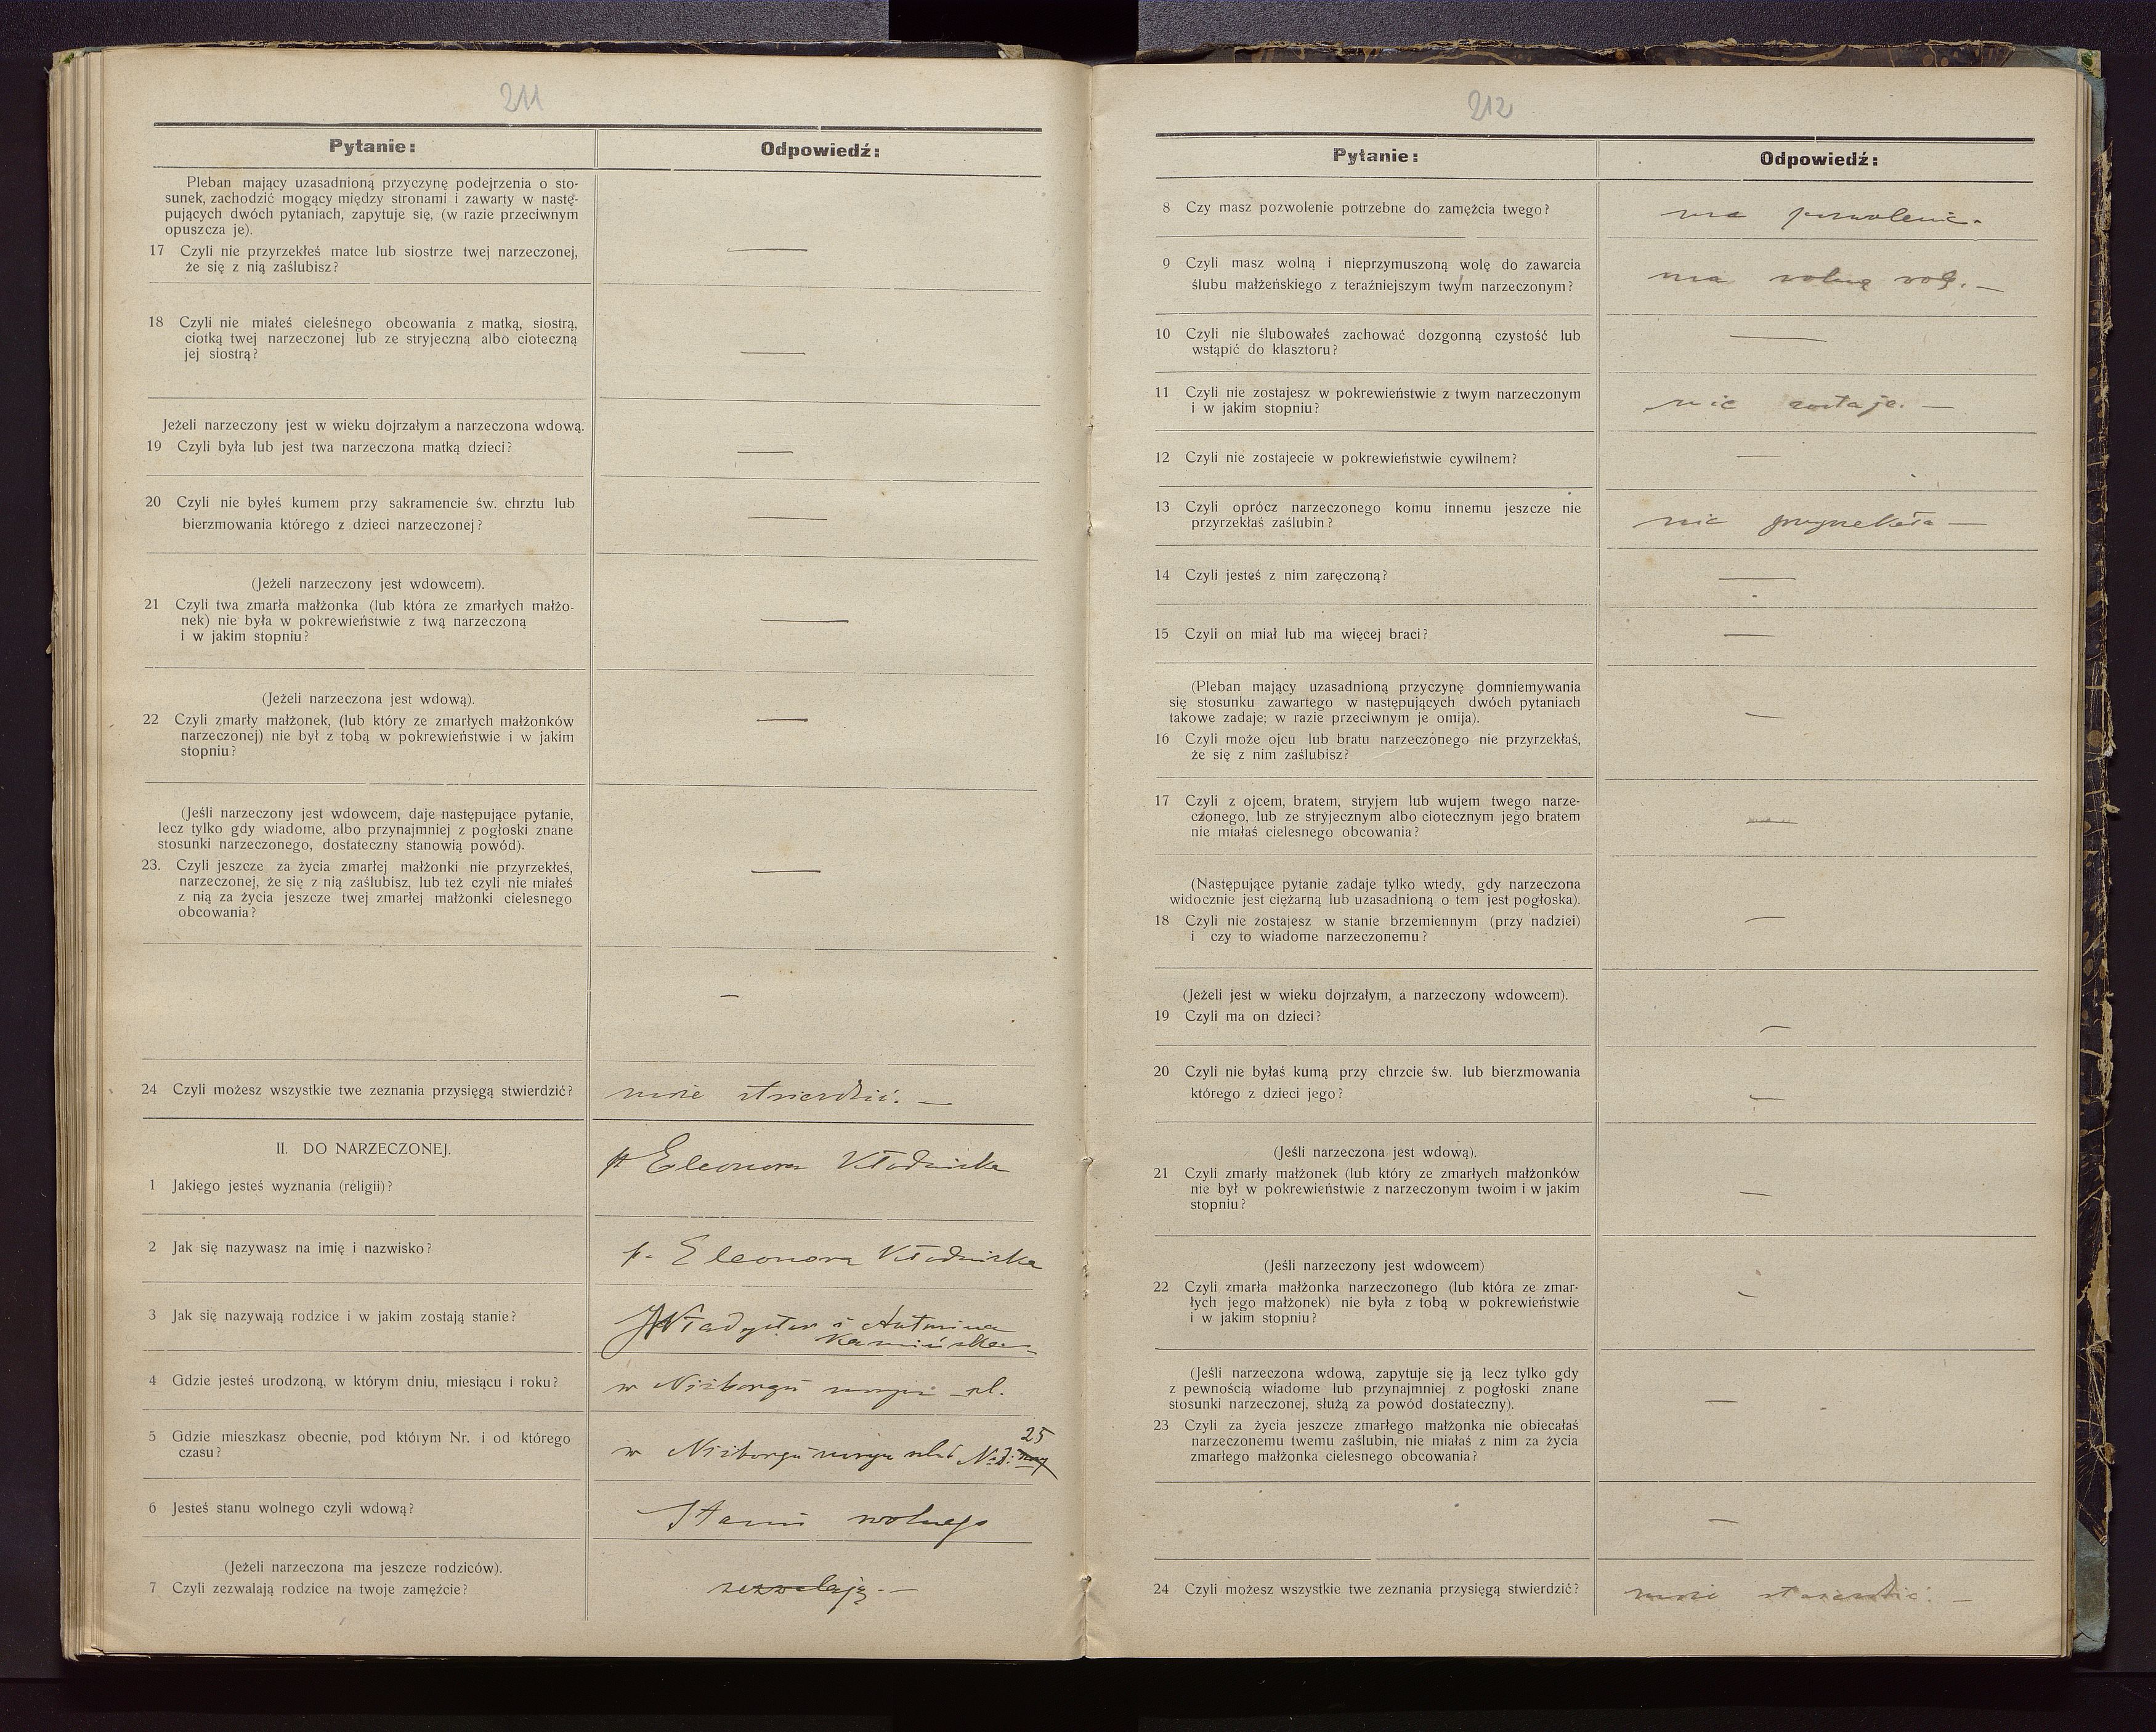 211
Pytanie:
Odpowiedź:
Pleban mający uzasadnioną przyczynę podejrzenia o sto-
sunek, zachodzić mogący między stronami i zawarty w nastę-
pujących dwóch pytaniach, zapytuje się, (w razie przeciwnym
opuszcza je).
17 Czyli nie przyrzekłeś matce lub siostrze twej narzeczonej,
że się z nią zaślubisz?
—
18 Czyli nie miałeś cieleśnego obcowania z matką, siostrą,
ciotką twej narzeczonej lub ze stryjeczną albo cioteczną
jej siostrą?
—
Jeżeli narzeczony jest w wieku dojrzałym a narzeczona wdową.
19 Czyli była lub jest twa narzeczona matką dzieci?
—
20 Czyli nie byłeś kumem przy sakramencie św. chrztu lub
bierzmowania którego z dzieci narzeczonej?
—
(Jeżeli narzeczony jest wdowcem).
21 Czyli twa zmarła małżonka (lub która ze zmarłych małżo-
nek) nie była w pokrewieństwie z twą narzeczoną
i w jakim stopniu?
—
(Jeżeli narzeczona jest wdową).
22 Czyli zmarły małżonek, (lub który ze zmarłych małżonków
narzeczonej) nie był z tobą w pokrewieństwie i w jakim
stopniu?
—
(Jeśli narzeczony jest wdowcem, daje następujące pytanie,
lecz tylko gdy wiadome, albo przynajmniej z pogłoski znane
stosunki narzeczonego, dostateczny stanowią powód).
23. Czyli jeszcze za życia zmarłej małżonki nie przyrzekłeś,
narzeczonej, że się z nią zaślubisz, lub też czyli nie miałeś
z nią za życia jeszcze twej zmarłej małżonki cielesnego
obcowania?
—
—
24 Czyli możesz wszystkie twe zeznania przysięgą stwierdzić?
może stwierdzić. —
II. DO NARZECZONEJ.
1 Jakiego jesteś wyznania (religii)?
Eleonora Kłodnicka
2 Jak się nazywasz na imię i nazwisko?
p. Eleonora Kłodnicka
3 Jak się nazywają rodzice i w jakim zostają stanie?
Władysław i Antonina
Kamińska
4 Gdzie jesteś urodzoną, w którym dniu, miesiącu i roku?
w Niżborgu
5 Gdzie mieszkasz obecnie, pod którym Nr. i od którego
czasu?
25
w Niżborgu
6 Jesteś stanu wolnego czyli wdową?
Stanu wolnego
(Jeżeli narzeczona ma jeszcze rodziców).
7 Czyli zezwalają rodzice na twoje zamęźcie?
zezwalają. —
212
Pytanie:
Odpowiedź:
8 Czy masz pozwolenie potrzebne do zamężcia twego?
ma pozwolenie.
9 Czyli masz wolną i nieprzymuszoną wolę do zawarcia
ślubu małżeńskiego z teraźniejszym twym narzeczonym?
ma wolną wolę. —
10 Czyli nie ślubowałeś zachować dozgonną czystość lub
wstąpić do klasztoru?
—
11 Czyli nie zostajesz w pokrewieństwie z twym narzeczonym
i w jakim stopniu?
nie zostaje. —
12 Czyli nie zostajecie w pokrewieństwie cywilnem?
—
13 Czyli oprócz narzeczonego komu innemu jeszcze nie
przyrzekłaś zaślubin?
nie przyrzekła —
14 Czyli jesteś z nim zaręczoną?
—
15 Czyli on miał lub ma więcej braci?
—
(Pleban mający uzasadnioną przyczynę domniemywania
się stosunku zawartego w następujących dwóch pytaniach
takowe zadaje; w razie przeciwnym je omija).
16 Czyli może ojcu lub bratu narzeczonego nie przyrzekłaś,
że się z nim zaślubisz?
—
17 Czyli z ojcem, bratem, stryjem lub wujem twego narze-
czonego, lub ze stryjecznym albo ciotecznym jego bratem
nie miałaś cielesnego obcowania?
—
(Następujące pytanie zadaje tylko wtedy, gdy narzeczona
widocznie jest ciężarną lub uzasadnioną o tem jest pogłoska).
18 Czyli nie zostajesz w stanie brzemiennym (przy nadziei)
i czy to wiadome narzeczonemu?
—
(Jeżeli jest w wieku dojrzałym, a narzeczony wdowcem).
19 Czyli ma on dzieci?
—
20 Czyli nie byłaś kumą przy chrzcie św. lub bierzmowania
którego z dzieci jego?
—
(Jeśli narzeczona jest wdową).
21 Czyli zmarły małżonek (lub który ze zmarłych małżonków
nie był w pokrewieństwie z narzeczonym twoim i w jakim
stopniu?
—
(Jeśli narzeczony jest wdowcem)
22 Czyli zmarła małżonka narzeczonego (lub która ze zmar-
łych jego małżonek) nie była z tobą w pokrewieństwie
i w jakim stopniu?
—
(Jeśli narzeczona wdową, zapytuje się ją lecz tylko gdy
z pewnością wiadome lub przynajmniej z pogłoski znane
stosunki narzeczonej, służą za powód dostateczny).
23 Czyli za życia jeszcze zmarłego małżonka nie obiecałaś
narzeczonemu twemu zaślubin, nie miałaś z nim za życia
zmarłego małżonka cielesnego obcowania?
—
—
24 Czyli możesz wszystkie twe zeznania przysięgą stwierdzić?
może stwierdzić. —